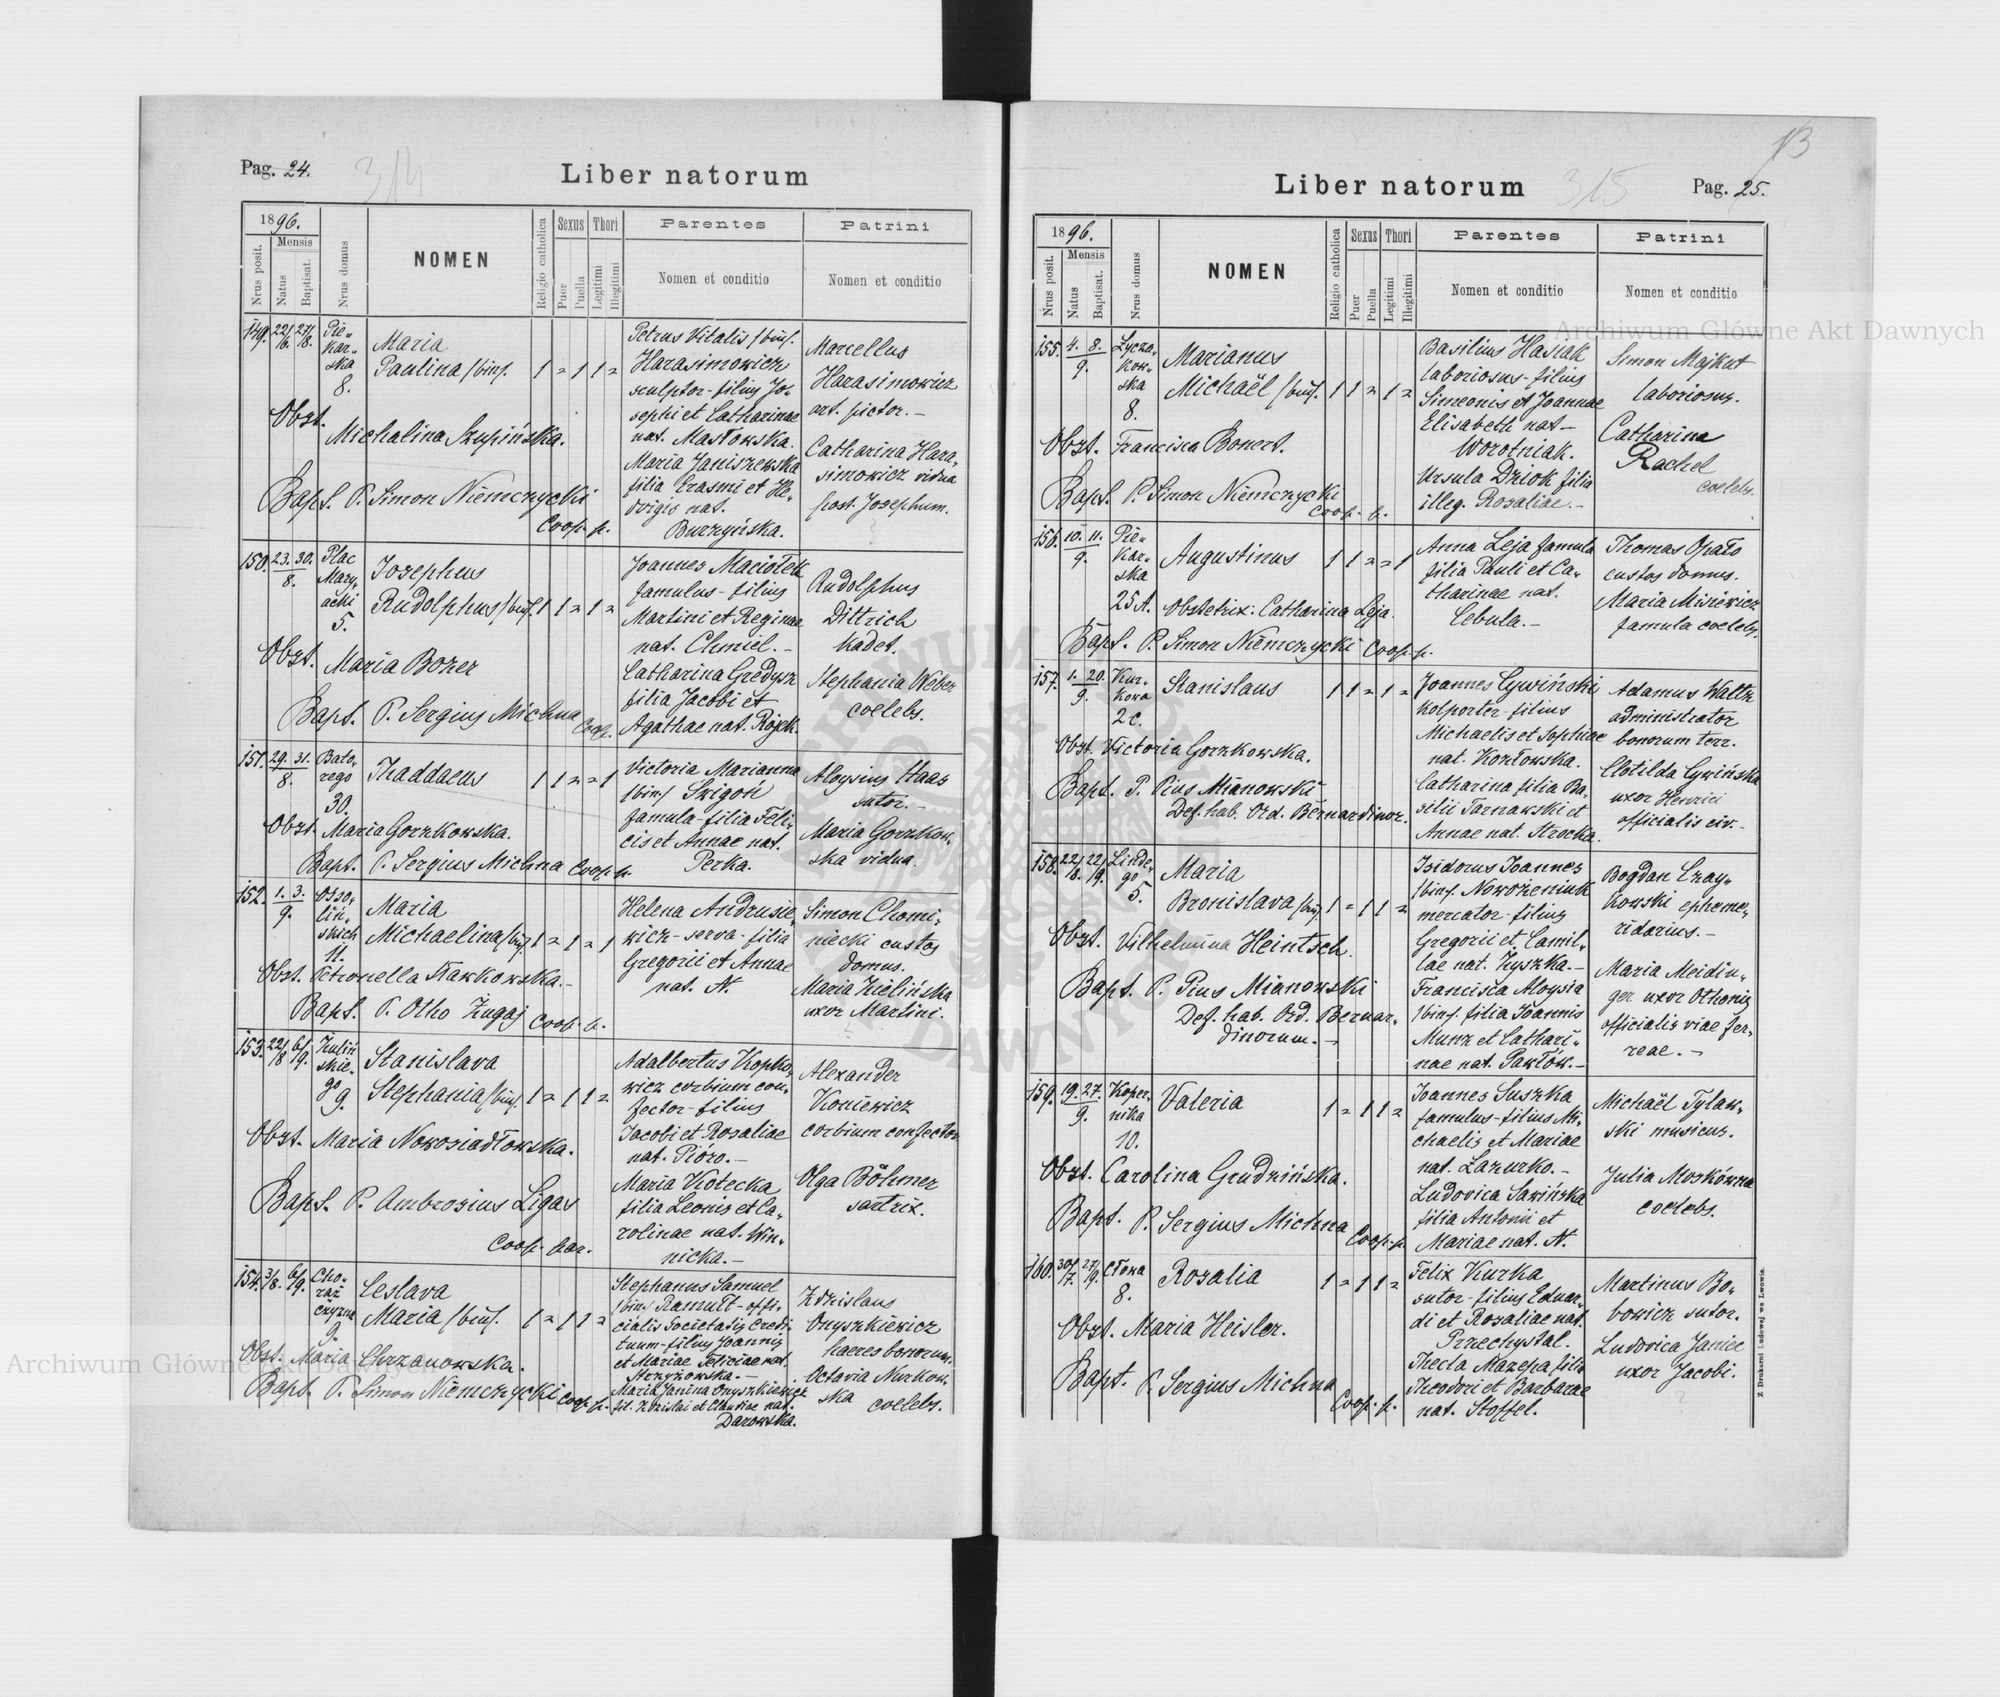 Pag. 24.
314
Liber natorum
1896.
Nrus posit.
Mensis
Natus
Baptisat.
Nrus domus
NOMEN
Religio catholica
Sexus
Puer
Puella
Thori
Legitimi
Illegitimi
Parentes
Nomen et conditio
Patrini
Nomen et conditio
149. 22/6. 27/8. Pie-
kar-
ska
8.
Maria
Paulina /bin/. 1 = 1 1 =
Obst.
Michalina Szupińska.
Bapt. P. Simon Niemczycki
Coop. p.
Petrus Vitalis /bin/.
Harasimowicz
sculptor - filius Jo-
sephi et Catharinae
nat. Masłowska.
Maria Janiszewska
filia Erasmi et He-
dvigis nat.
Burzyńska.
Marcellus
Harasimowicz
art. pictor. -
Catharina Hara-
simowicz vidua
post. Josephum.
150. 23. 30. Plac
8. Mary-
acki
5.
Josephus
Rudolphus /bin/. 1 1 = 1 =
Obst. Maria Bozer
Bapt. P. Sergius Michna
Coop.
Joannes Maciołek
famulus - filius
Martini et Reginae
nat. Chmiel. -
Catharina Gredysz
filia Jacobi et
Agathae nat. Rojek.
Rudolphus
Dittrich
kadet.
Stephania Weber
coelebs.
151. 29. 31. Bato-
8. rego
30.
Thaddaeus 1 1 = = 1
Obst. Maria Gorzkowska.
Bapt. P. Sergius Michna Coop. p.
Victoria Marianna
/bin/ Świgoń
famula - filia Feli-
cis et Annae nat.
Perka.
Aloysius Haas
sutor. -
Maria Gorzkow-
ska vidua.
152. 1. 3. Osso-
9. liń-
skich
11.
Maria
Michaelina /bin/ 1 = 1 = 1
Obst. Petronella Ławkowska. -
Bapt. P. Otho Zugaj Coop. p.
Helena Andrusie-
wicz - serva - filia
Gregorii et Annae
nat. N.
Simon Chomi-
niecki custos
domus.
Maria Zielińska
uxor Martini.
153. 22/8 6/9. Zuliń
skie-
go
9.
Stanislava
Stephania /bin/. 1 = 1 1 =
Obst. Maria Nowosiadłowska.
Bapt. P. Ambrosius Ligas
Coop. par.
Adalbertus Kopko-
wicz corbium con-
fector - filius
Jacobi et Rosaliae
nat. Pióro. -
Maria Kotecka
filia Leonis et Ca-
rolinae nat. Win-
nicka. -
Alexander
Koniewicz
corbium confector
Olga Böhmer
sartrix.
154. 3/8. 6/9. Cho-
rąż
czyzna
9.
Ceslava
Maria /bin/. 1 = 1 1 =
Obst. Maria Chrzanowska.
Bapt. P. Simon Niemczycki Coop. p.
Stephanus Samuel
/bin/ Ramułt - offi-
cialis Societatis Credi-
tuum - filius Joannis
et Mariae Feliciae nat.
Strzyżowska. -
Maria Janina Onyszkiewicz
fil. Zdzislai et Claudiae nat.
Darowska.
Zdzislaus
Onyszkiewicz
haeres bonorum.
Octavia Nurkow-
ska coelebs.
13
Liber natorum
315
Pag. 25.
1896.
Nrus posit.
Mensis
Natus
Baptisat.
Nrus domus
NOMEN
Religio catholica
Sexus
Puer
Puella
Thori
Legitimi
Illegitimi
Parentes
Nomen et conditio
Patrini
Nomen et conditio
155. 4. 8. Łycza-
9. kow-
ska
8.
Marianus
Michaël /bin/. 1 1 = 1 =
Obst. Francisca Bonert.
Bapt. P. Simon Niemczycki
Coop. p.
Basilius Hasiak
laboriosus - filius
Simeonis et Joannae
Elisabeth nat -
Worotniak.
Ursula Dziok filia
illeg. Rosaliae. -
Simon Majkut
laboriosus.
Catharina
Rachel
coelebs.
156. 10. 11. Pie-
9. kar-
ska
25 A.
Augustinus 1 1 = = 1
Obstetrix: Catharina Leja.
Bapt. P. Simon Niemczycki Coop. p.
Anna Leja famula
filia Pauli et Ca-
tharinae nat.
Cebula. -
Thomas Opało
custos domus.
Maria Misiewicz
famula coelebs.
157. 1. 20. Kur-
9. kowa
2 c.
Stanislaus 1 1 = 1 =
Obst. Victoria Gorzkowska.
Bapt. P. Pius Mianowski
Def. hab. Ord. Bernardinor.
Joannes Cywiński
kolporter - filius
Michaelis et Sophiae
nat. Kozłowska.
Catharina filia Ba-
silii Tarnawski et
Annae nat. Strocka.
Adamus Waltz
administrator
bonorum terr.
Clotilda Cywińska
uxor Henrici
officialis civ. -
158. 22/8. 22/9. Linde-
go
5.
Maria
Bronislava /bin/. 1 = 1 1 =
Obst. Vilhelmina Heintsch.
Bapt. P. Pius Mianowski
Def. hab. Ord. Bernar-
dinorum. -
Isidorus Joannes
/bin/. Nowożeniuk
mercator - filius
Gregorii et Camil-
lae nat. Zyszka. -
Francisca Aloysia
/bin/. filia Joannis
Munz et Cathari-
nae nat. Pawłów. -
Bogdan Czay-
kowski epheme-
ridarius. -
Maria Meidin-
ger uxor Othonis
officialis viae fer-
reae. -
159. 19. 27. Koper-
9. nika
10.
Valeria 1 = 1 1 =
Obst. Carolina Grudzińska.
Bapt. P. Sergius Michna
Coop. p.
Joannes Suszka
famulus - filius Mi-
chaelis et Mariae
nat. Łazurko. -
Ludovica Sawińska
filia Antonii et
Mariae nat. N.
Michaël Tylaw-
ski musicus.
Julia Moskówna
coelebs.
160. 30/7. 27/9. Cłowa
8.
Rosalia 1 = 1 1 =
Obst. Maria Heisler.
Bapt. P. Sergius Michna
Coop. p.
Felix Kurka
sutor - filius Eduar-
di et Rosaliae nat.
Przechystal.
Thecla Mazepa filia
Theodori et Barbarae
nat. Stoffel.
Martinus Bo-
bowicz sutor.
Ludovica Janiec
uxor Jacobi.
Z Drukarni Ludowej we Lwowie.
Archiwum Główne Akt Dawnych
Archiwum Główne Akt Dawnych